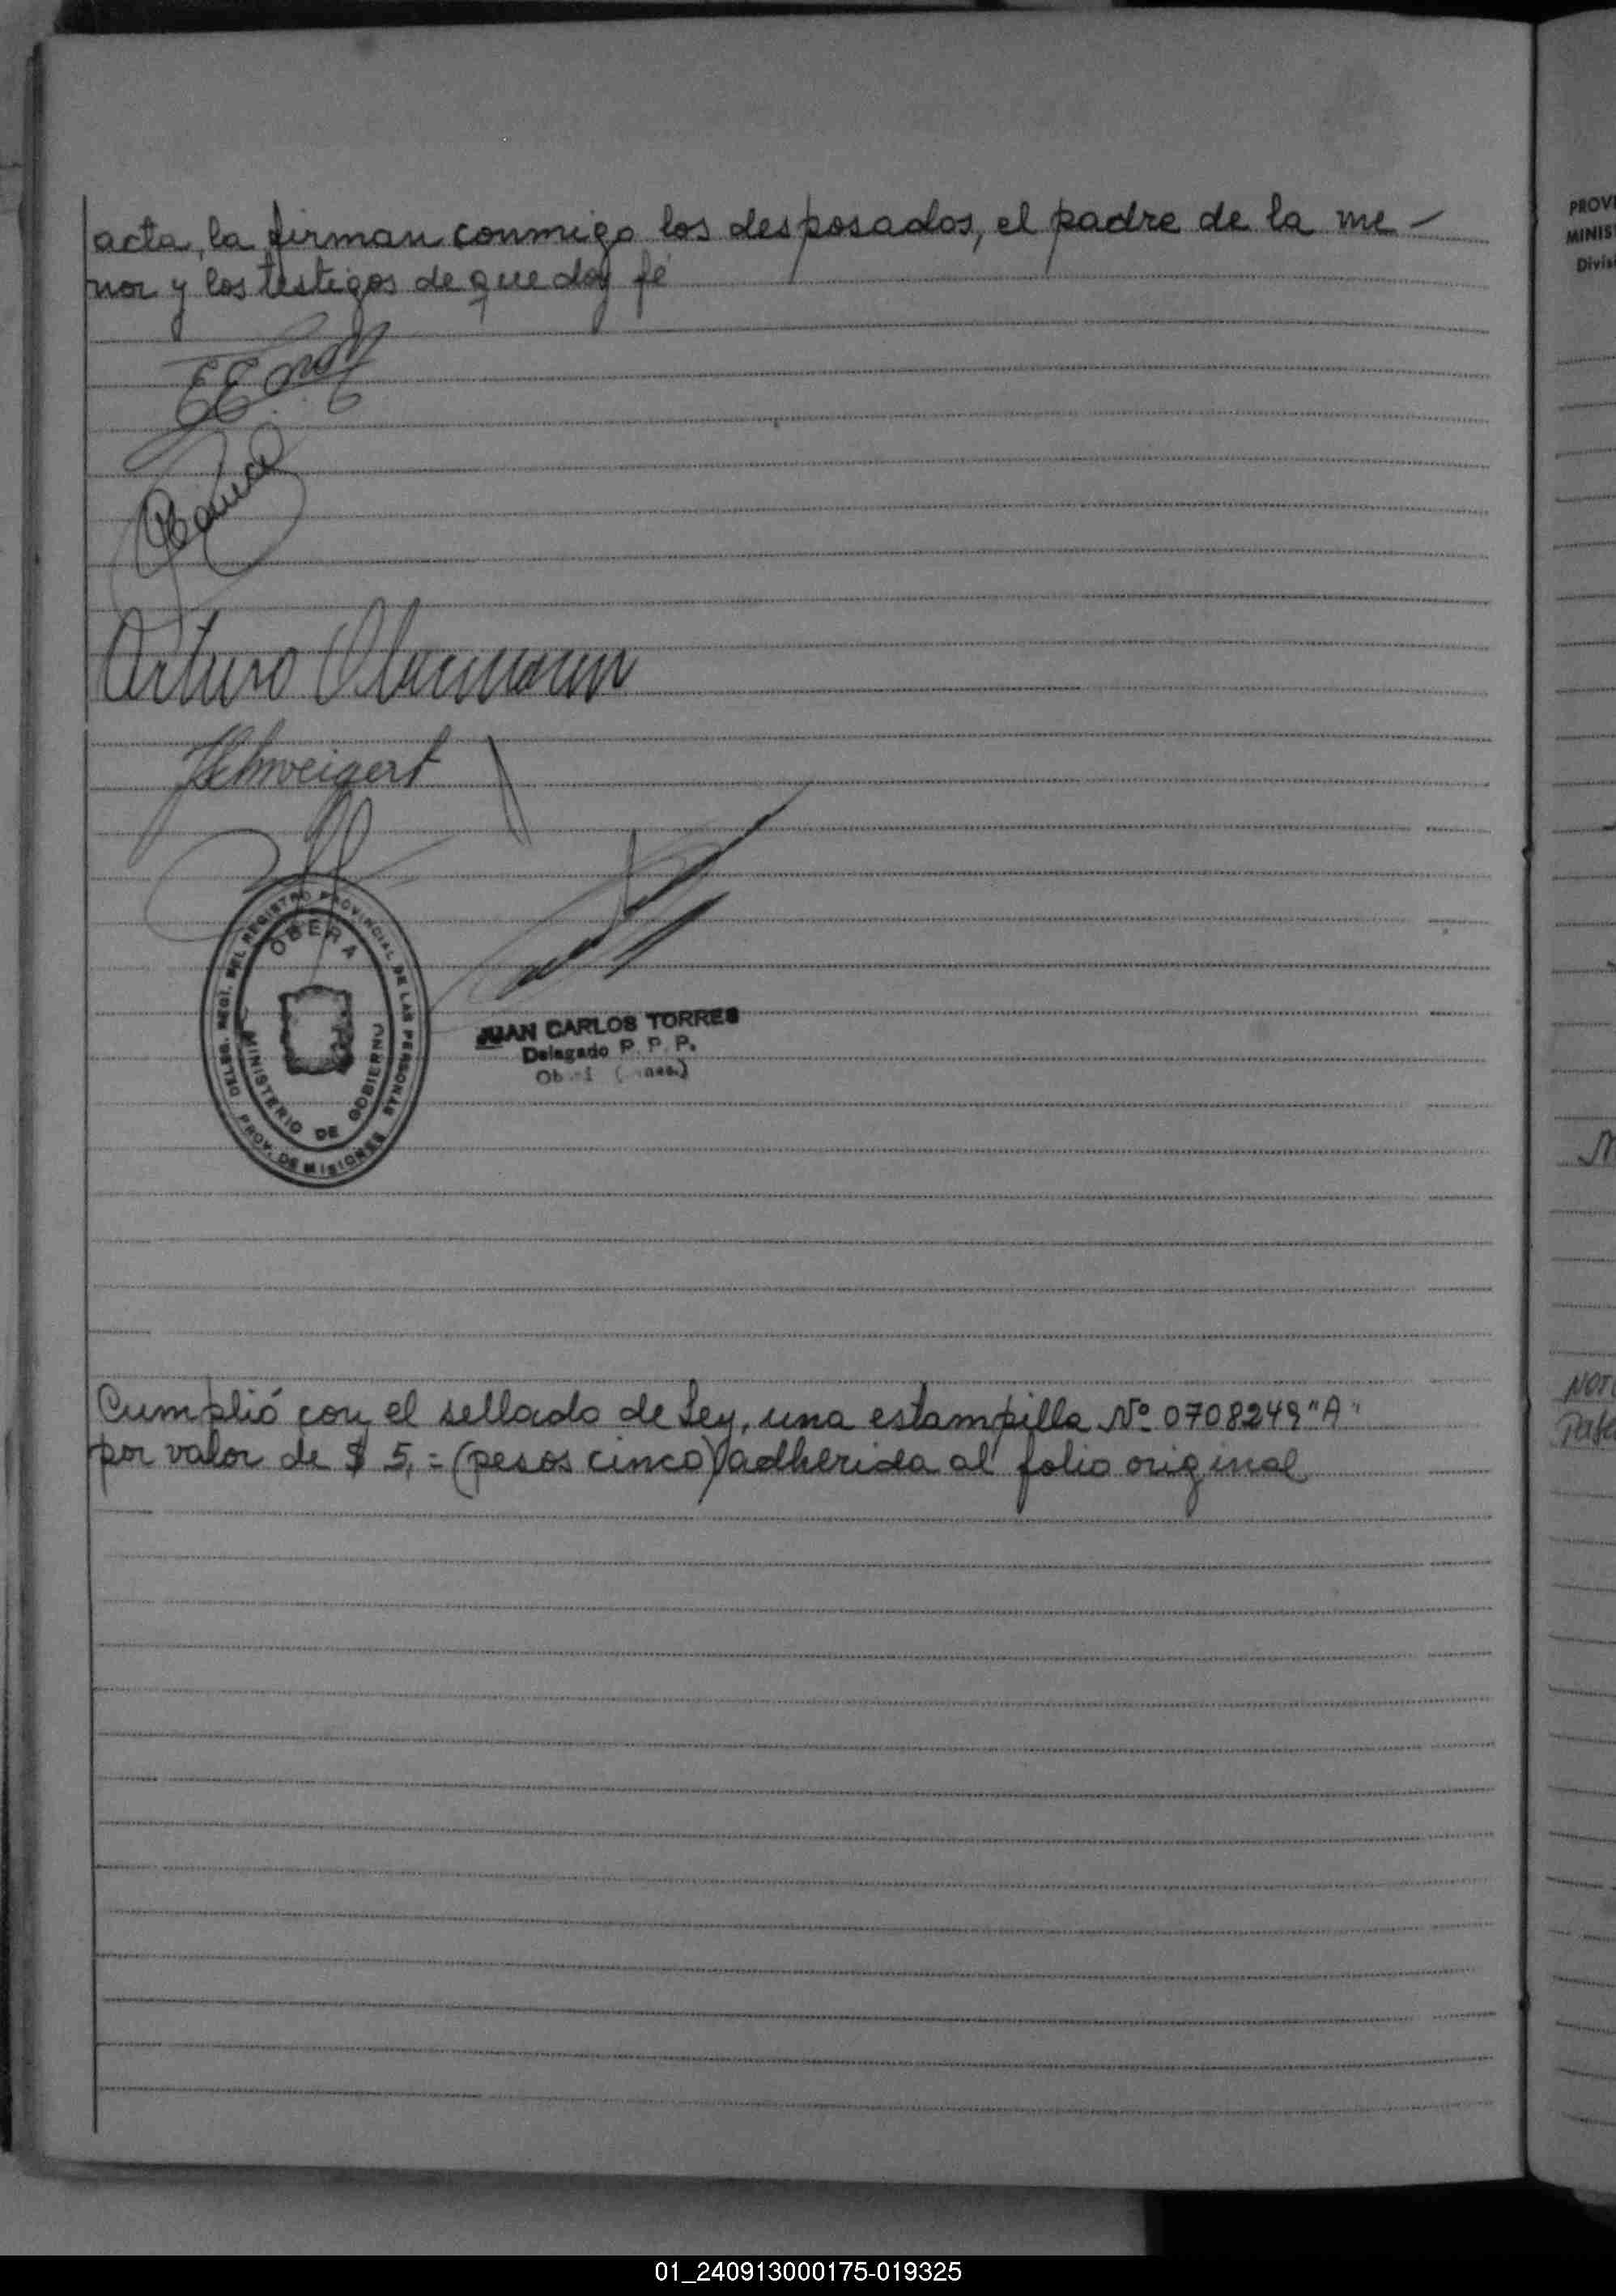 acta, la firman conmigo los desposados, el padre de la me-
nor y los testigos de que doy fé
Arturo
Schweigert
DEL REGISTRO PROVINCIAL DE LAS PERSONAS
OBERA
MINISTERIO DE GOBIERNO
PROV. DE MISIONES
JUAN CARLOS TORRES
Delegado P. P. P.
Cumplió con el sellado de Ley, una estampilla Nº 0708249 "A"
por valor de $ 5,= (pesos cinco) adherida al folio original
PROVI
MINIS
Divis
NOT
01_240913000175-019325